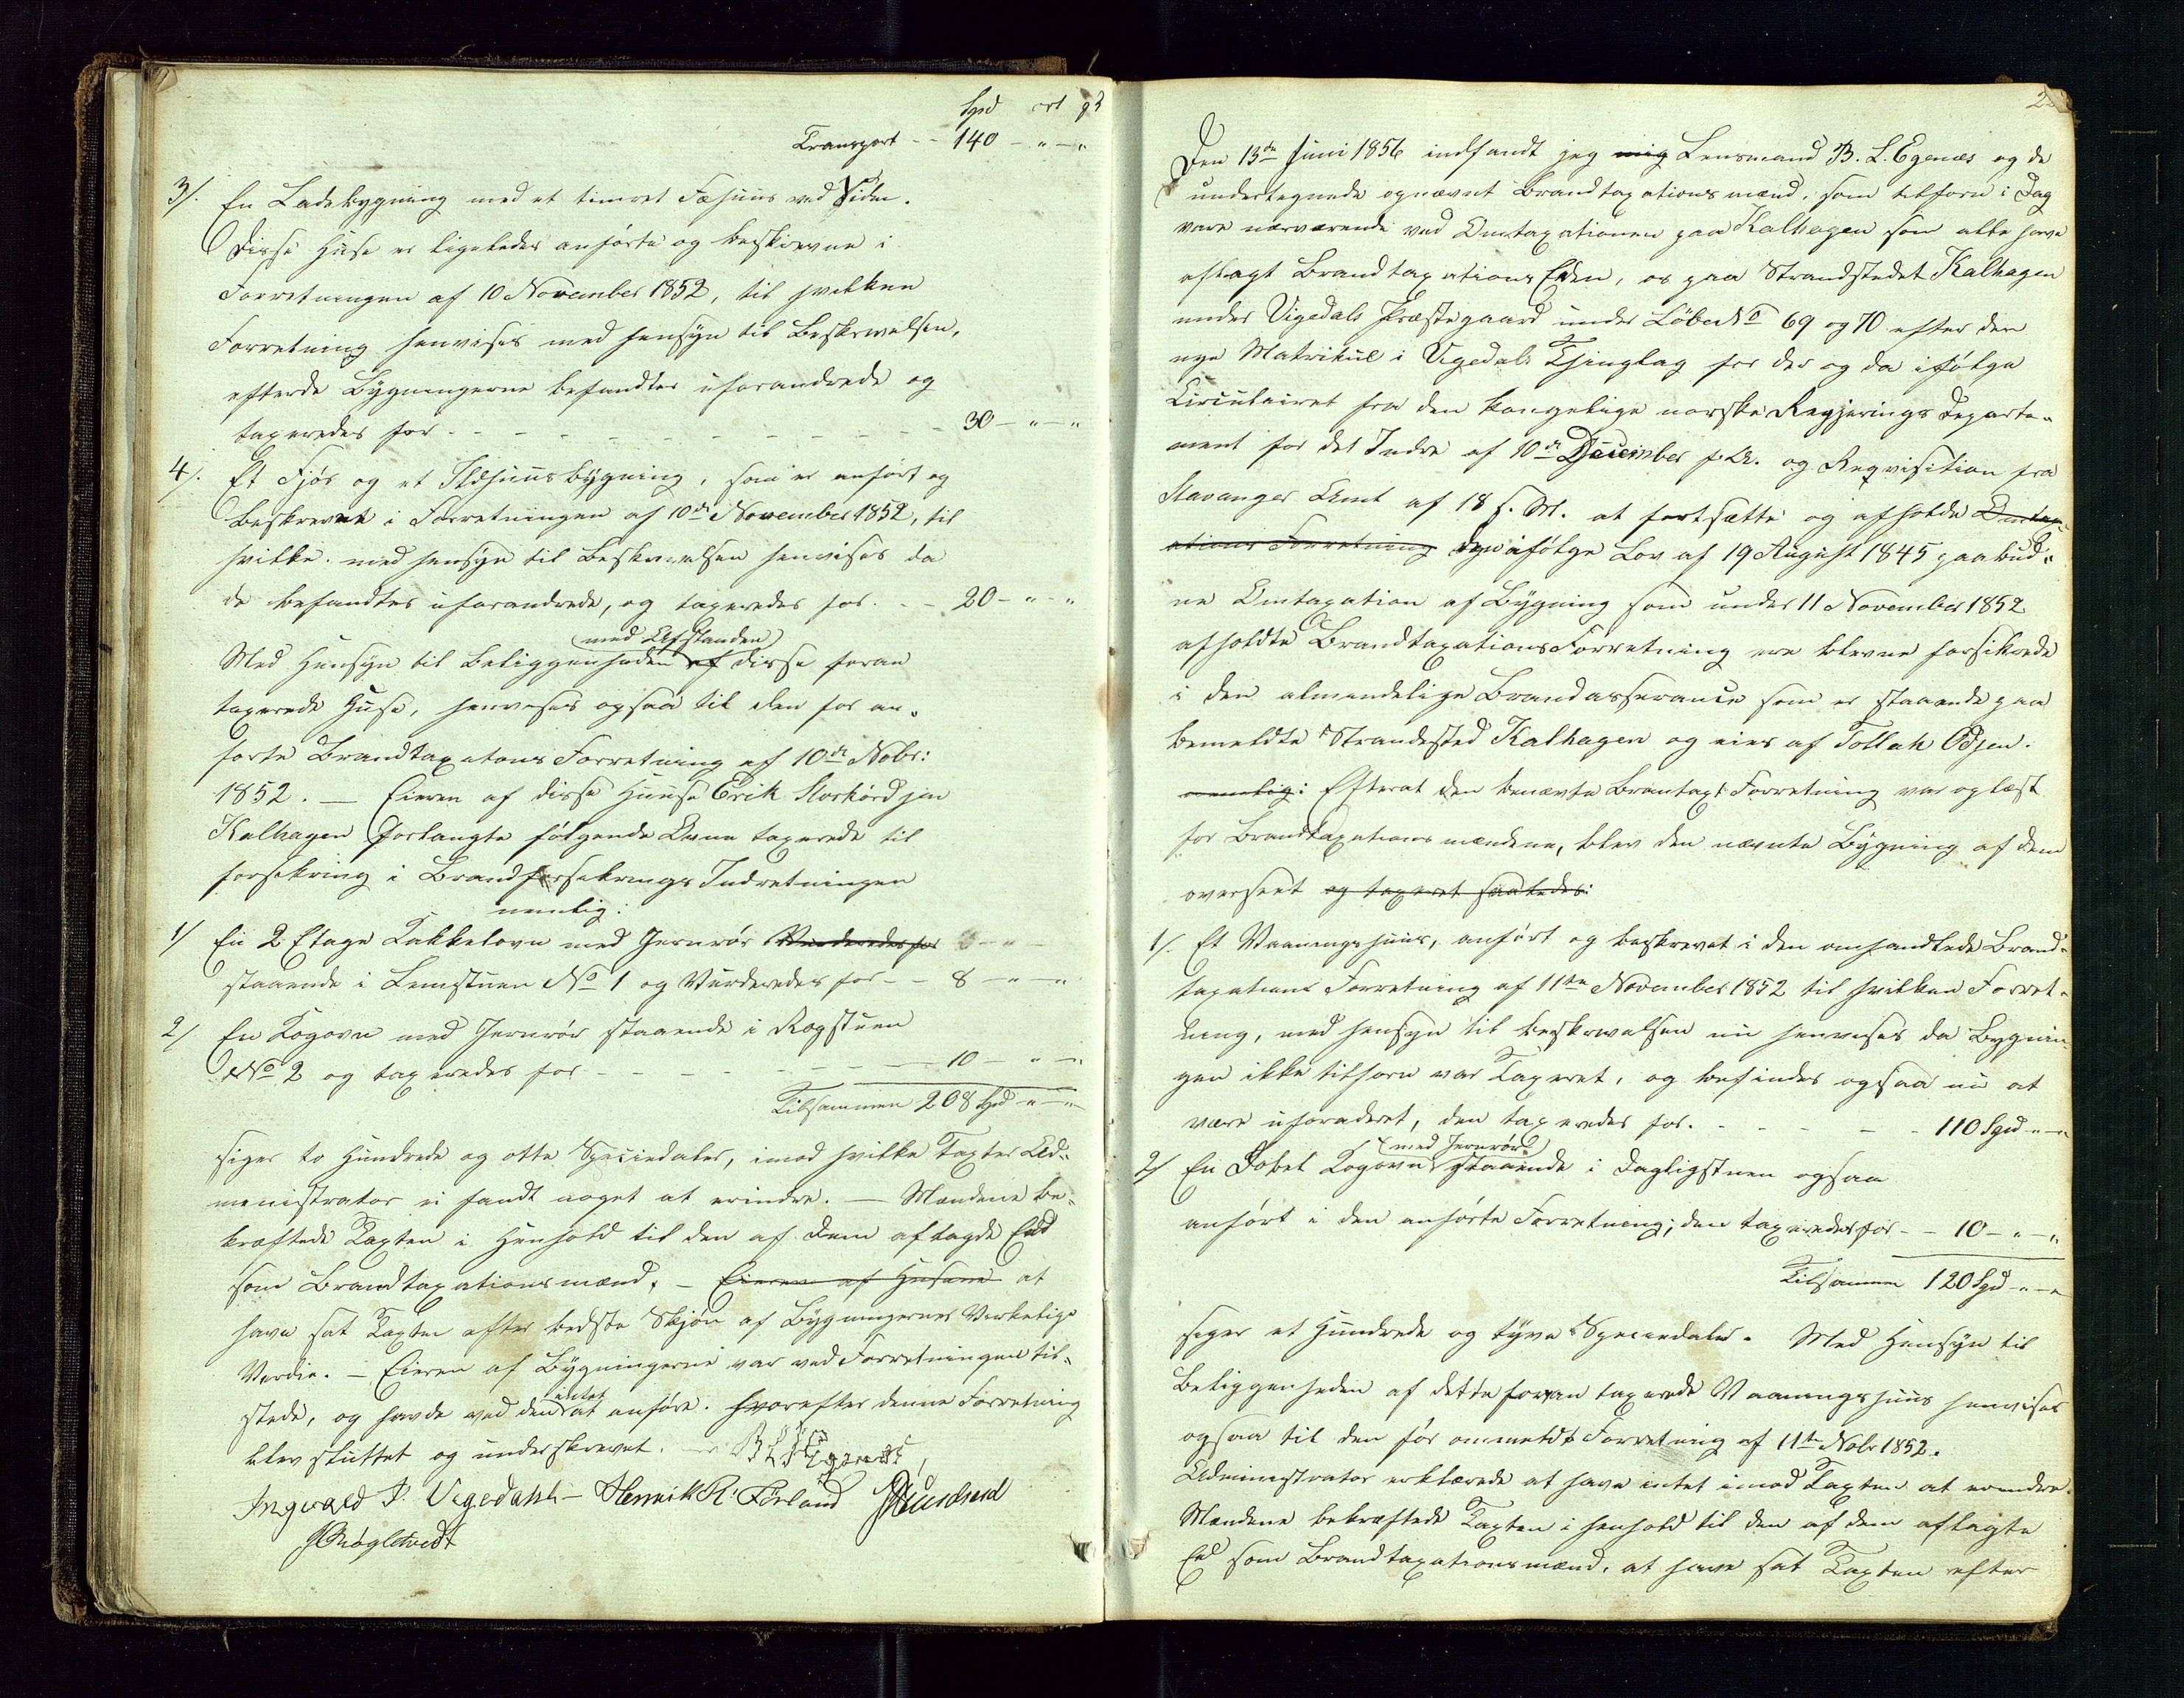 Spd ort ß
Transport - - 140 - " - "
3/. En Ladebygning med et timret Fæhuus ved Siden.
Disse Huse er ligeledes anførte og beskrevne i
Forretningen af 10 November 1852, til hvilken
Forretning henvises med Hensyn til Beskrivelsen,
efterde Bygningerne befandtes uforandrede og
taxeredes for - - - - - - - - - - 30 - " - "
4/. Et Fjøs og et Ildhuusbygning, som er anført og
beskrevet i Forretningen af 10de November 1852, til
hvilke med Hensyn til Beskrivelsen henvises da
de befandtes uforandrede, og taxeredes for - - 20 - " - "
(med Afstanden)
Med Hensyn til Beliggenheden af disse foran
taxerede Huse, henvises ogsaa til den for an-
førte Brandtaxatons Forretning af 10de Nobr:
1852. — Eieren af disse Huuse Erik
Kalhagen forlangte følgende Ovne taxerede til
forsikring i Brandforsikrings Indretningen
nemlig:
1/ En 2 Etage Kakkelovn med Jernrør Vurderedes for 8 - " -
staaende i Lemstuen No 1 og Vurderedes for - - 8 - " - "
2/ En Kogovn med Jernrør staaende i Rogstuen
No 2 og taxeredes for - - - - - - - 10 - " - "
Tilsammen 208 Spd - " - "
siger to Hundrede og otte Speciedaler, imod hvilke Taxter Ad-
ministrator ei fandt noget at erindre. — Mændene be-
kræftede Taxten i Henhold til den af dem aflagde Eed
som Brandtaxationsmænd, — Eieren af Husene at
have sat Taxten efter bedste Skjøn af Bygningernes Verkelige
Verdie. — Eieren af Bygningerne var ved Forretningen til-
stede, og havde ved den intet at anføre. Hvorefter denne Forretning
blev sluttet og underskrevet. — B L Egenæs,
Ingvald P. Vigedahl — Henrik R. Førland
Den 13de Juni 1856 indfandt jeg mig Lensmand B. L. Egenæs og de
undertegnede opnævnt Brandtaxationsmænd, som tilforn i Dag
vare nærværende ved Omtaxationen paa Kalhagen som alle have
aflagt BrandtaxationsEden, os paa Strandstedet Kalhagen
under Vigedals Præstegaard under LøbeNo 69 og 70 efter den
nye Matrikul i Vigedals Thinglag for der og da ifølge
Circulairet fra den kongelige norske Regjerings Departe-
ment for det Indre af 10de December f. A. og Reqvisition fra
Stavanger Amt af 18 f. M. at fortsætte og afholde Omtax-
ations Forretning den ifølge Lov af 19 August 1845 paabud-
ne Omtaxation af Bygning som under 11 November 1852
afholdte BrandtaxationsForretning ere blevne forsikrede
i den almindelige Brandassurance som er staaende paa
bemeldte Strandsted Kalhagen og eies af Tollak Odsen.
nemlig: Efterat den benævnte Brantaxt Forretning var oplæst
for Brandtaxationsmændene, blev den nævnte Bygning af dem
overseet og taxeret saaledes:
1/. Et Vaaningshuus, anført og beskrevet i den omhandlede Brand-
taxations Forretning af 11te November 1852 til hvilken Forret-
ning, med Hensyn til beskrivelsen nu henvises da Bygnin-
gen ikke tilforn var Taxeret, og befindes ogsaa nu at
være uforadret, den taxeredes for - - - - - 110 Spd " - "
(med Jernrør)
2/ En Dobel Kogovn staaende i Dagligstuen ogsaa
anført i den anførte Forretning; den taxeredes for - - 10 - " - "
Tilsammen 120 Spd " - "
siger et Hundrede og tyve Speciedaler. Med Hensyn til
Beliggenheden af dette foran taxerede Vaaningshuus henvises
ogsaa til den før ommeldt Forretning af 11te Nobr 1852.
Administrator erklærede at have intet imod Taxten at erindre.
Mændene bekræftede Taxten i henhold til den af dem aflagte
Eed som Brandtaxationsmænd, at have sat Taxten efter